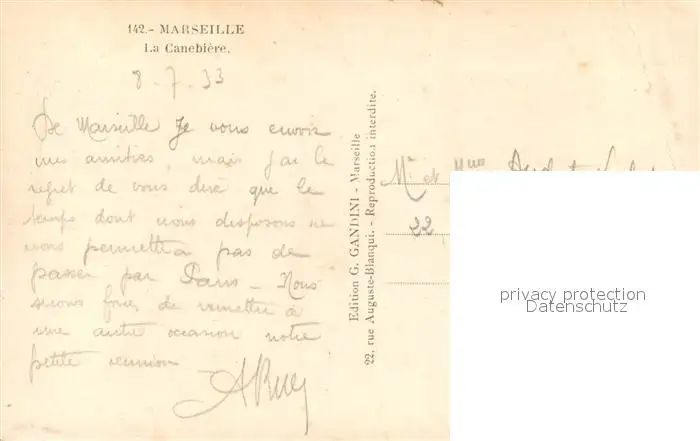 142.- MARSEILLE
La Canebière.
8.7.33
De Marseille Je vous envoie
mes amitiés, mais j'ai le
regret de vous dire que le
temps dont nous disposons ne
nous permettra pas de
passer par Paris - Nous
serons forcés de remettre à
une autre occasion notre
petite reunion
Edition G. GANDINI - Marseille
22, rue Auguste-Blanqui. - Reproduction interdite.
Mr et Mme
22,
privacy protection
Datenschutz